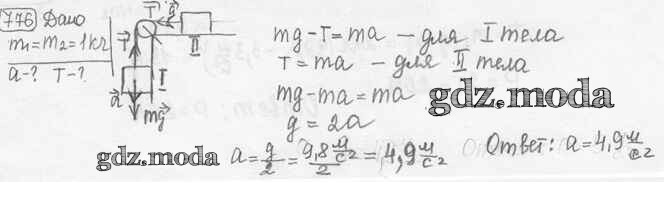 776 Дано
m₁=m₂=1кг
a-? T-?
T T a
II
T I
a
mg
mg-T=ma – для I тела
T=ma – для II тела
mg-ma=ma
g=2a
a=g/2=9,8 м/с²/2=4,9 м/с²
Ответ: a=4,9 м/с²
gdz.moda
gdz.moda